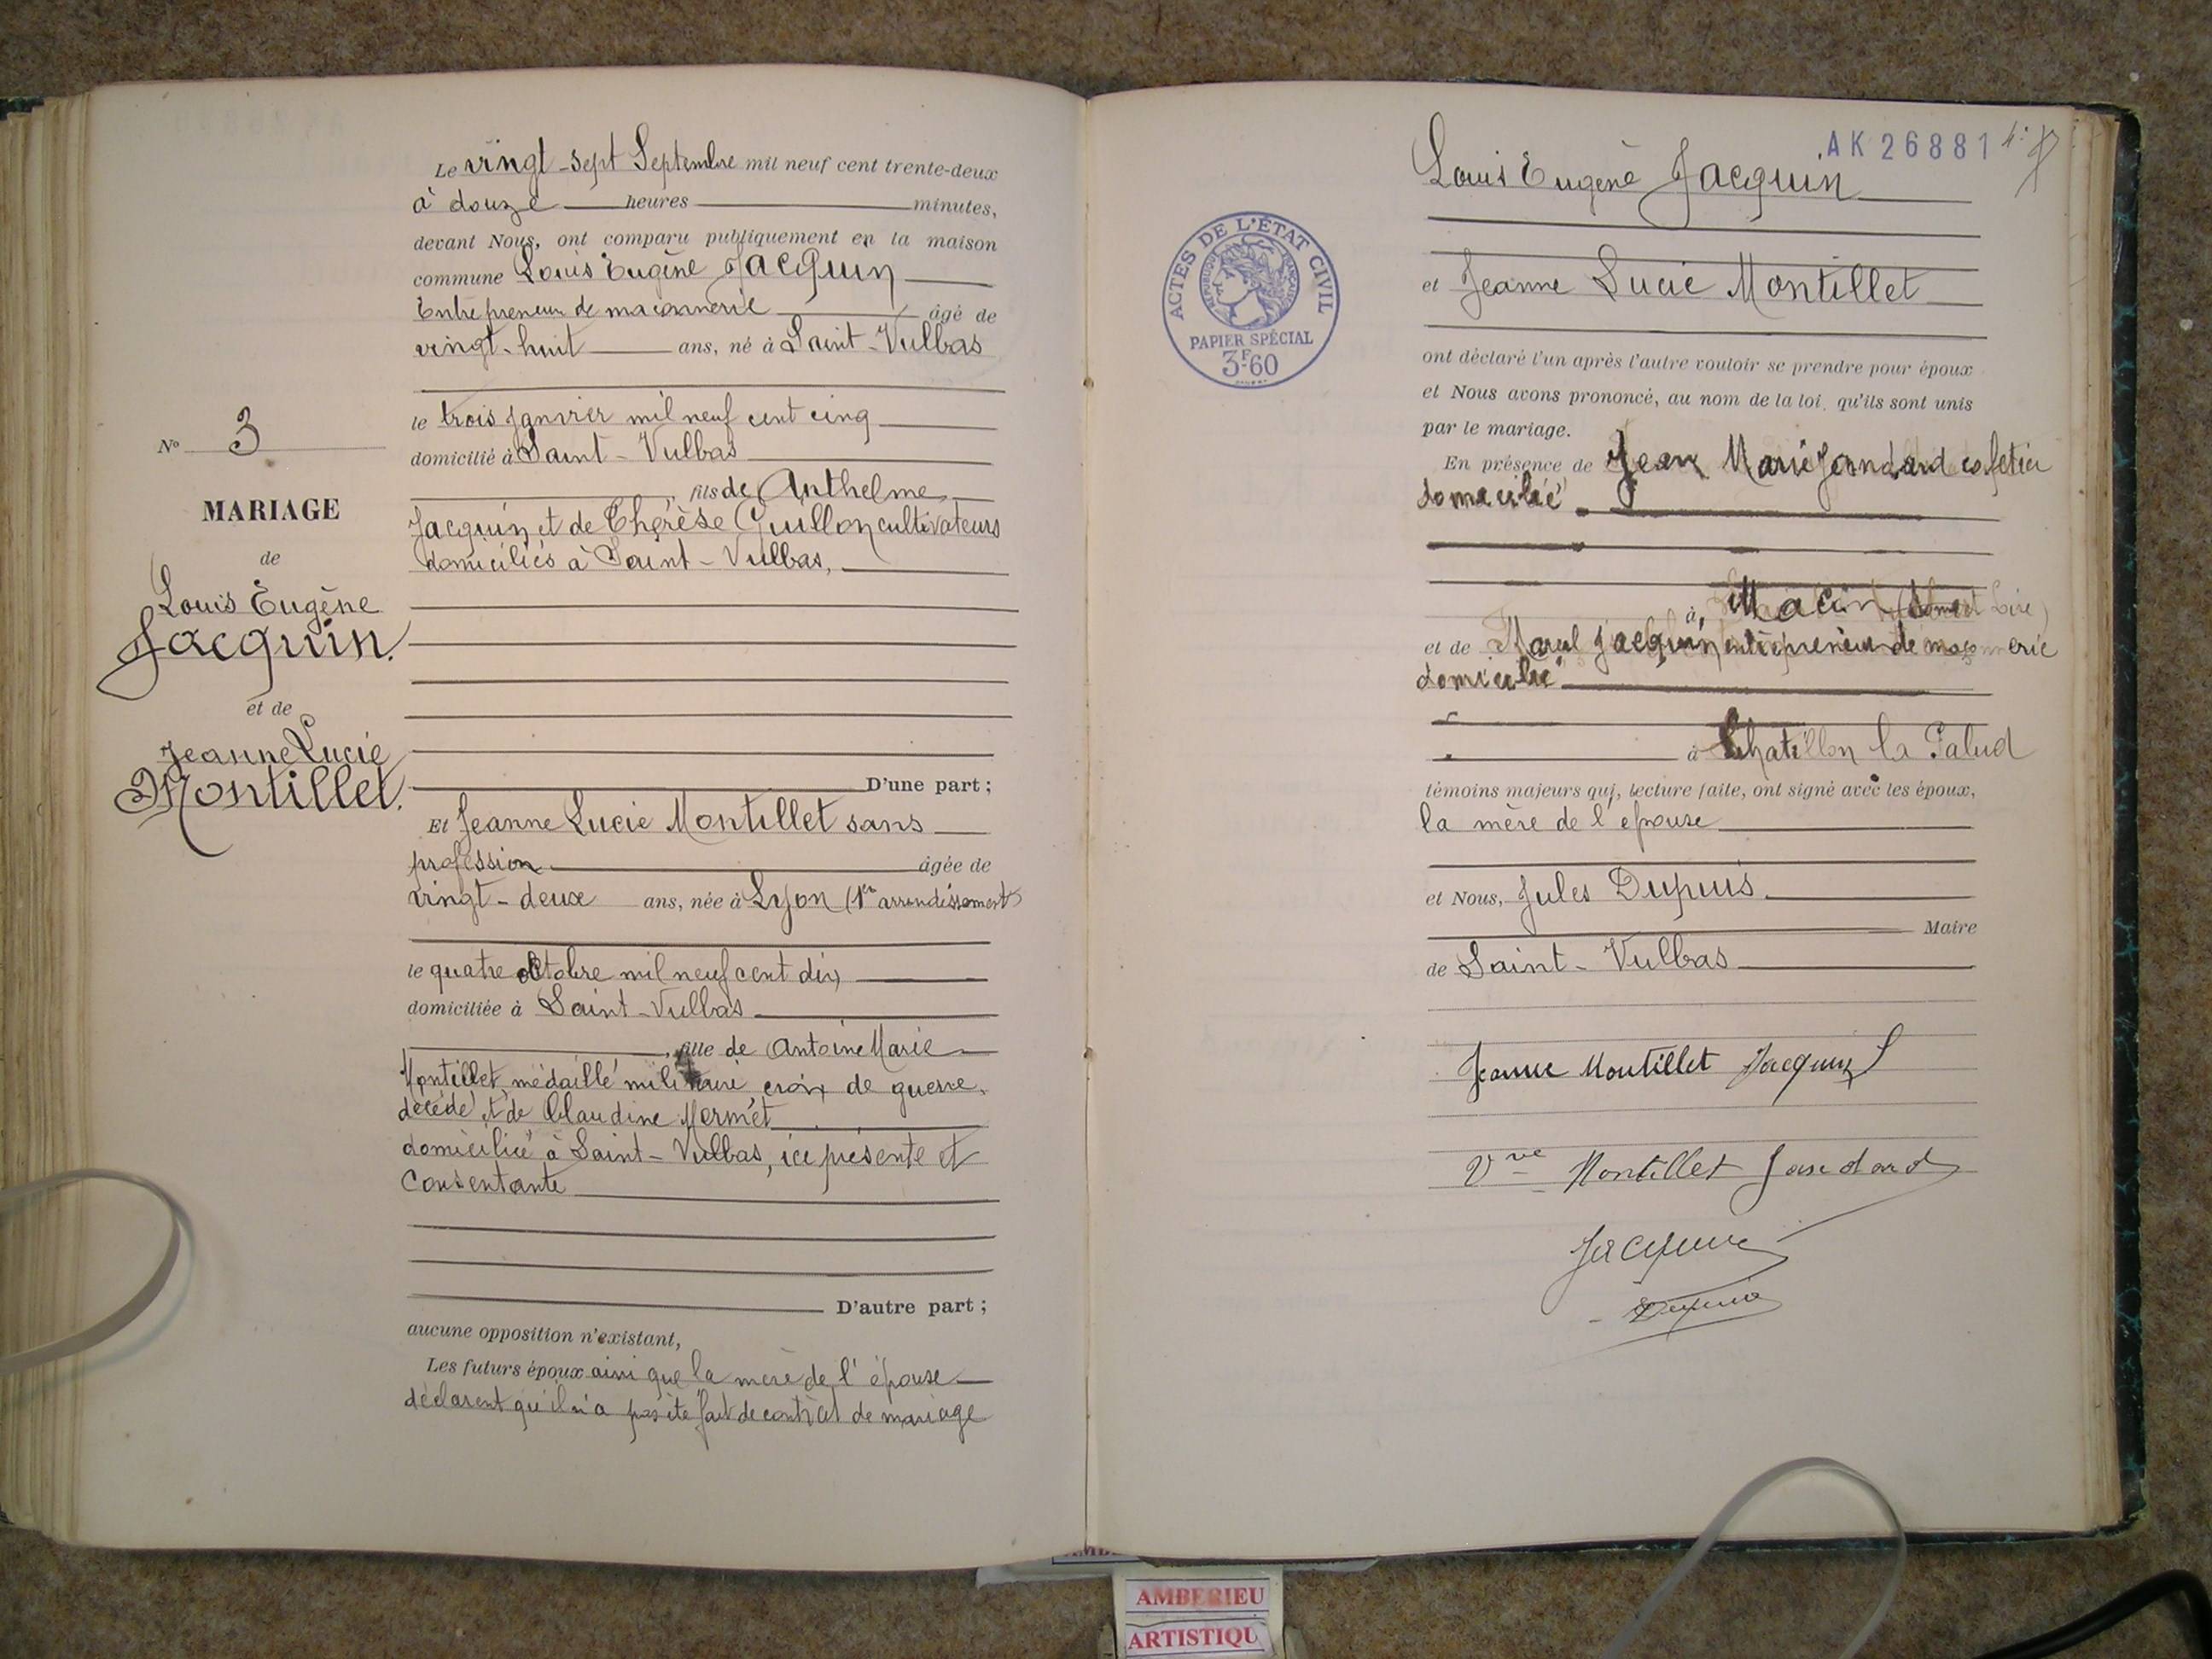 Le vingt-sept Septembre mil neuf cent trente-deux
à douze heures minutes,
devant Nous, ont comparu publiquement en la maison
commune Louis Eugène Jacquin
Entrepreneur de maçonnerie âgé de
vingt-huit ans, né à Saint-Vulbas
le trois janvier mil neuf cent cinq
domicilié à Saint-Vulbas
, fils de Anthelme
Jacquin et de Thérèse Guillon cultivateurs
domiciliés à Saint-Vulbas,
N° 3
MARIAGE
de
Louis Eugène
Jacquin.
et de
Jeanne Lucie
Montillet.
D'une part ;
Et Jeanne Lucie Montillet sans
profession âgée de
vingt-deux ans, née à Lyon (1er arrondissement)
le quatre octobre mil neuf cent dix
domiciliée à Saint-Vulbas
, fille de Antoine Marie
Montillet, médaillé militaire, croix de guerre,
décédé et de Claudine Mermet
domiciliée à Saint-Vulbas, ici présente et
Consentante
D'autre part ;
aucune opposition n'existant,
Les futurs époux ainsi que la mère de l'épouse
déclarent qu'il n'a pas été fait de contrat de mariage
AK 26881
Louis Eugène Jacquin
et Jeanne Lucie Montillet
ACTES DE L'ÉTAT CIVIL
RÉPUBLIQUE FRANÇAISE
PAPIER SPÉCIAL
3F60
ont déclaré l'un après l'autre vouloir se prendre pour époux
et Nous avons prononcé, au nom de la loi, qu'ils sont unis
par le mariage.
En présence de Jean Marie Jandard cafetier
domicilié
à
et de Jacquin entrepreneur de maçonnerie
domicilié
à Chatillon la Palud
témoins majeurs qui, lecture faite, ont signé avec les époux,
la mère de l'épouse
et Nous, Jules Dupuis
Maire
de Saint-Vulbas
Jeanne Montillet Jacquin
Vve Montillet Jandard
Jacquin
Dupuis
AMBERIEU
ARTISTIQU